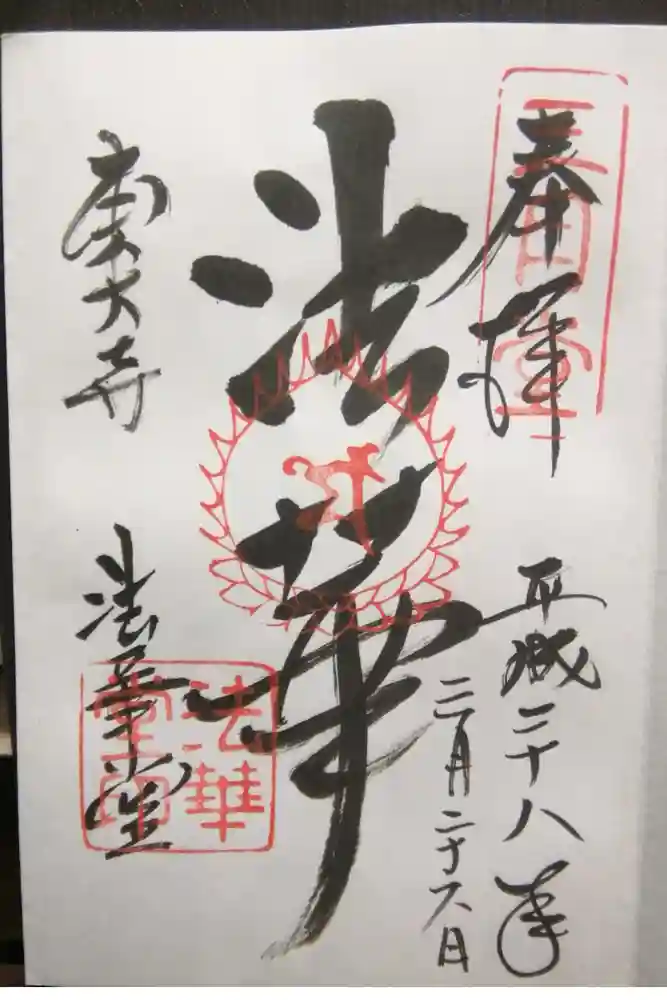 奉拝
三月堂
平成二十八年
三月二十六日
法華
東大寺
法華堂
法華
堂印